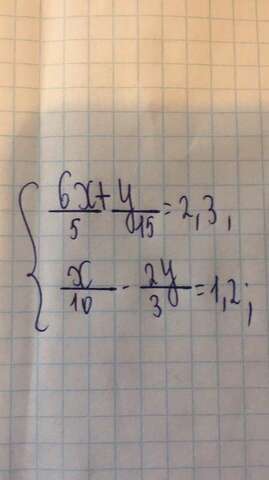 6x/5 + y/15 = 2,3,
x/10 - 2y/3 = 1,2;